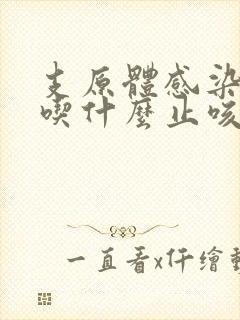 支原體感染
喫什麼止咳
一直看x仟繪動